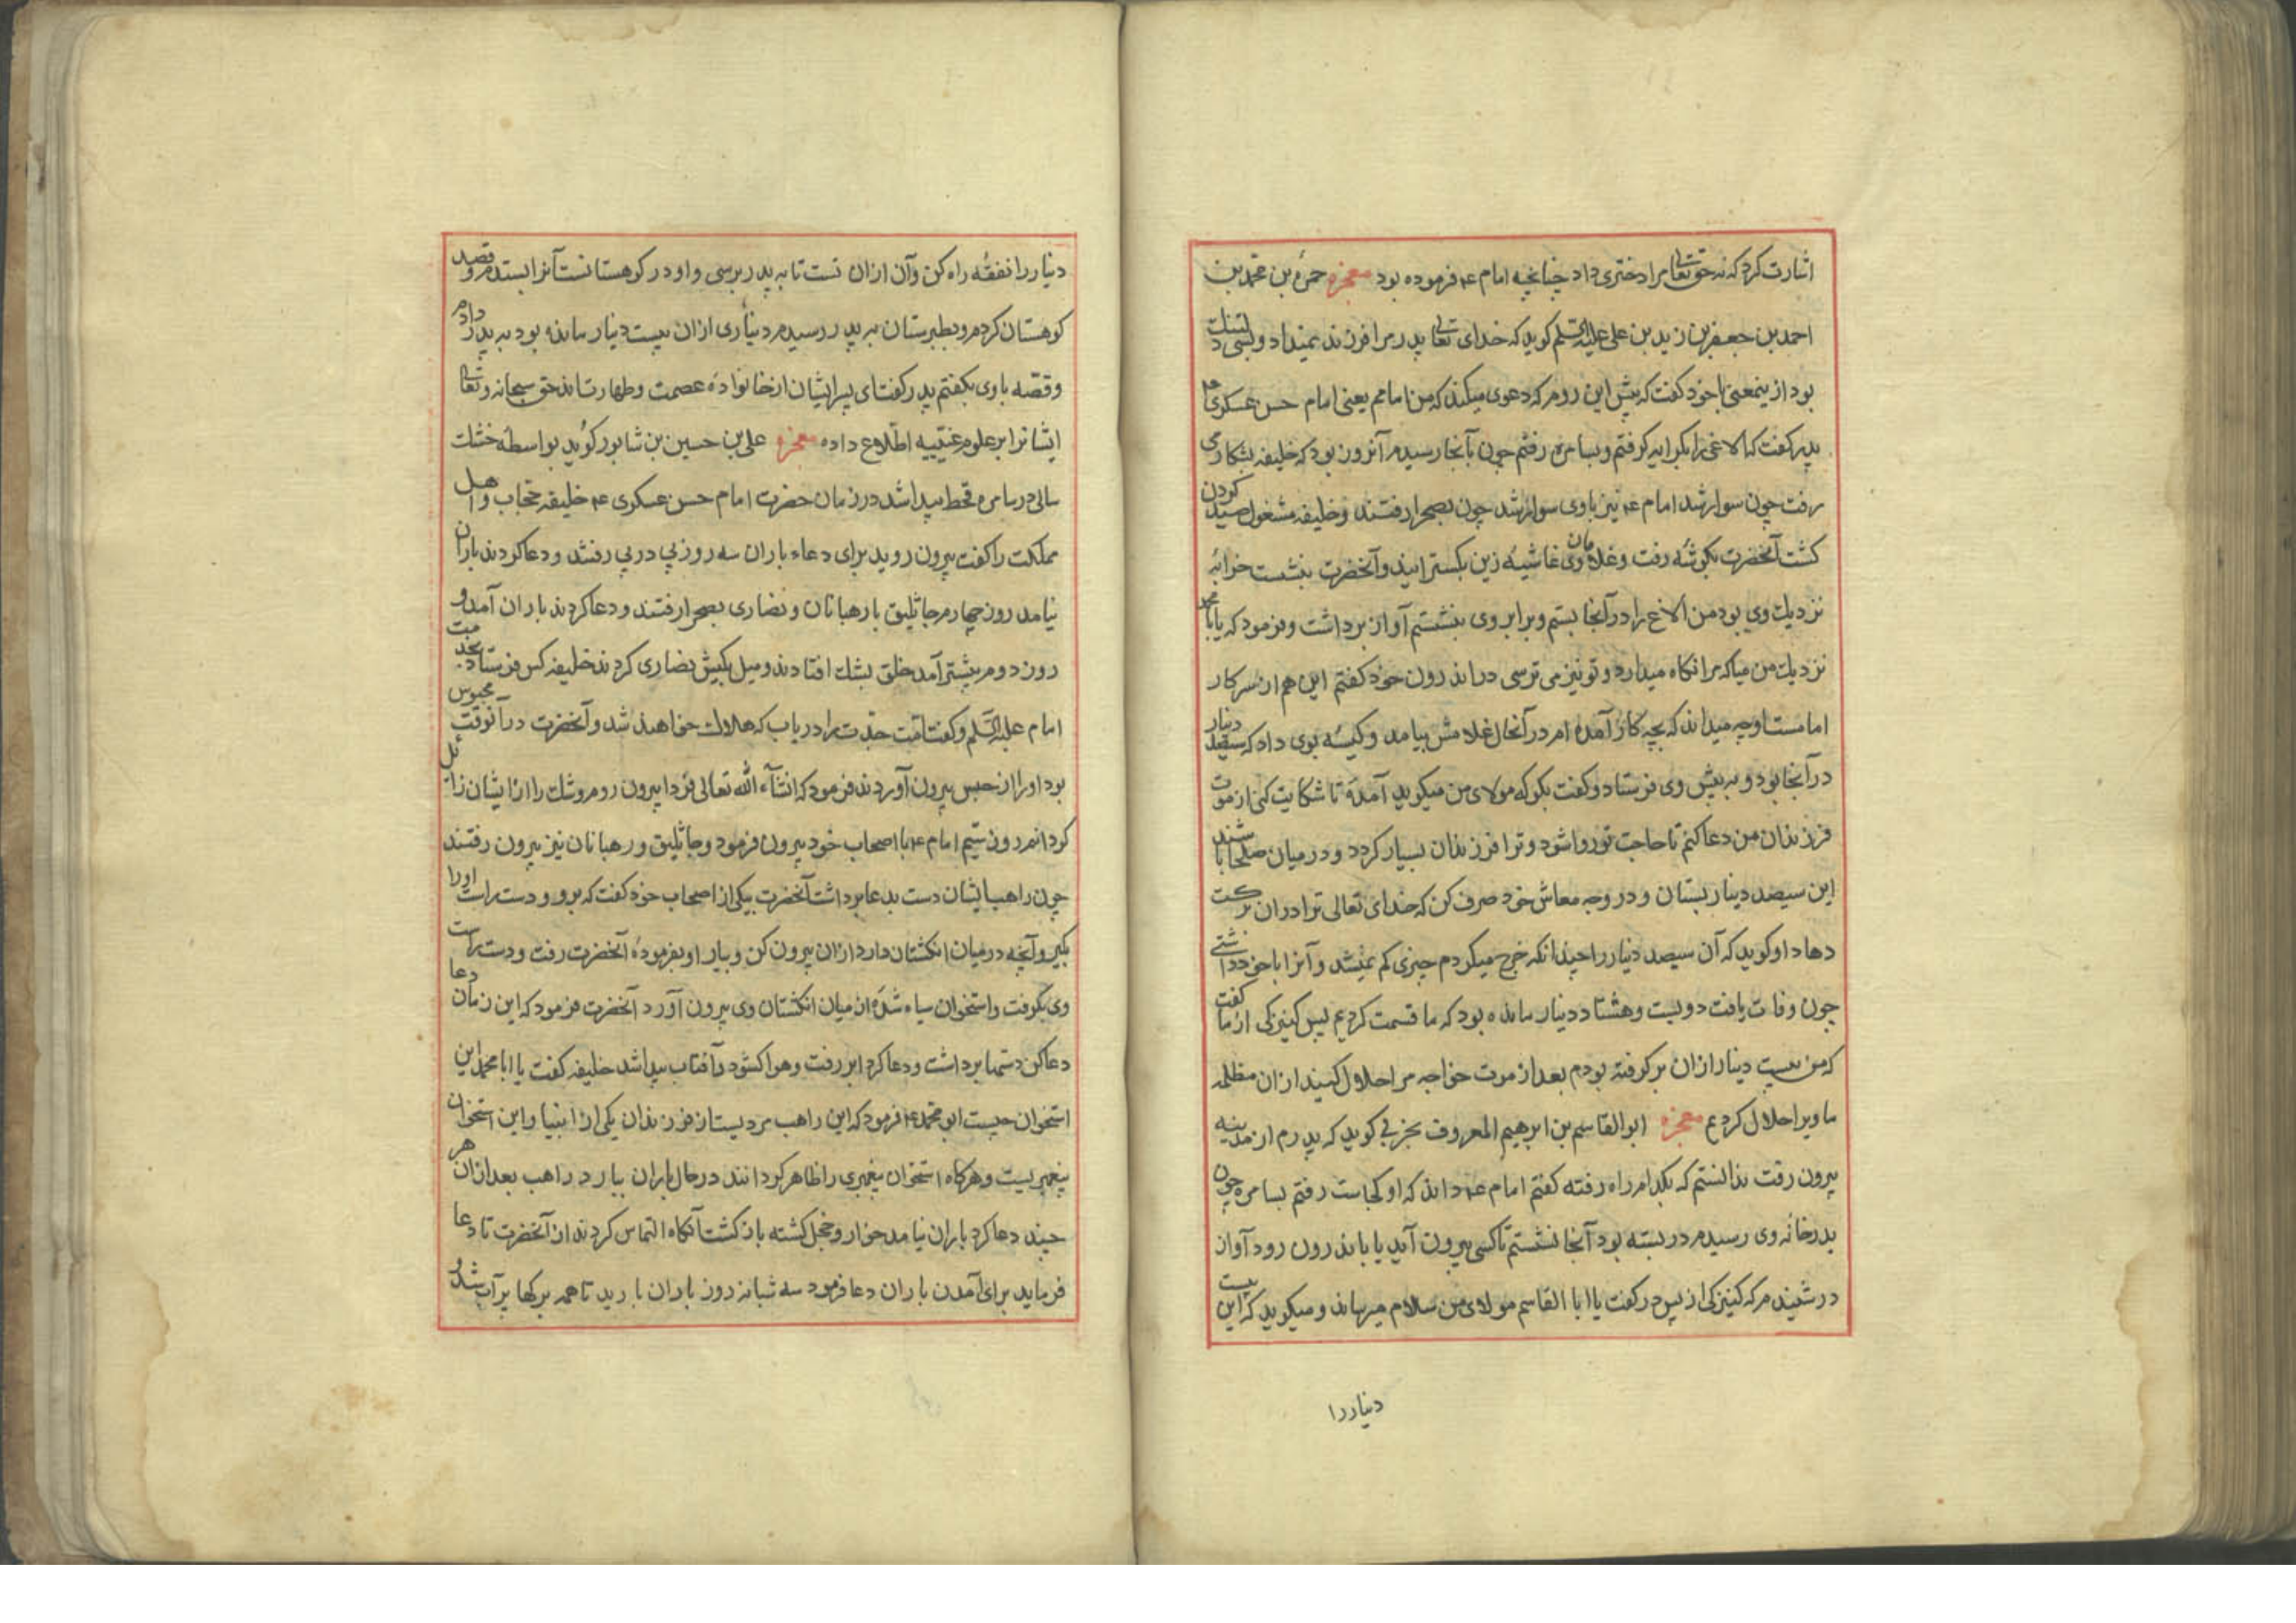 اشارت کرد که نه حق تعالی مرا دختری داد چنانچه امام ع فرموده بود معجزه حمزه بن محمد بن
احمد بن جعفر بن زید بن علی علیه السلم کوید که خدای تعالی پدر مرا فرزند نمیداد و بسی دلتنک
بود ازینمعنی با خود کفت که پیش این روم که دعوی میکند که من امامم یعنی امام حسن عسکری ع
پدرم کفت که الاغی را بکرایه کرفتم و بسامره رفتم چون بآنجا رسیدم آنروز بود که خلیفه بشکار می
رفت چون سوار شد امام ع نیز با وی سوار شد چون بصحرا رفتند و خلیفه مشغول صید کردن
کشت آنحضرت بکوشه رفت و غلامان وی غاشیه زین بکسترانید و آنحضرت بنشست خرابه
نزدیك وی بود من الاغ را در آنجا بستم و برابر وی بنشستم آواز برداشت و فرمود که یا با محمد
نزدیك من میا که مرا نکاه میدارد و تو نیز می ترسی در اندرون خود کفتم این هم از سر کار
امامست او چه میداند که بچه کار آمده ام در آنحال غلامش بیامد و کیسه بوی داد که سیصد دینار
در آنجا بود و به پیش وی فرستاد و کفت بکو که مولای من میکوید آمدهٔ تا شکایت کنی از موت
فرزندان من دعا کنم تا حاجت تو روا شود و ترا فرزندان بسیار کردد و در میان صلحا باشند
این سیصد دینار بستان و در وجه معاش خود صرف کن که خدای تعالی ترا در ان برکت
دهاد او کوید که آن سیصد دینار را چندانکه خرج میکردم چیزی کم نمیشد و آنرا با خود داشتی
چون وفات یافت دویست و هشتاد دینار مانده بود که ما قسمت کردیم پس کنیزکی از ما کفت
که من بیست دینار ازان بر کرفته بودم بعد از موت خواجه مرا حلال کنید ازان مظلمه
ما ویرا حلال کردیم معجزه ابوالقاسم بن ابرهیم المعروف کوید که پدرم از مدینه
بیرون رفت ندانستم که بکدام راه رفته کفتم امام ع داند که او کجاست رفتم بسامره چون
بدر خانه وی رسیدم در بسته بود آنجا نشستم تا کسی بیرون آید یا باندرون رود آواز
در شنیدم که کنیزکی از پس در کفت یا ابا القاسم مولای من سلام میرساند و میکوید که این بیست
دینار را
دینار را نفقه راه کن و آن ازان تست تا به پدر برسی و او در کوهستانست آنرا بستدم و قصد
کوهستان کردم و بطبرستان به پدر رسیدم دیناری ازان بیست دینار مانده بود به پدر دادم
و قصّه با وی بکفتم پدر کفت ای پسر ایشان از خانوادهٔ عصمت و طهارت اند حق سبحانه و تعالی
ایشانرا بر علوم غیبیه اطّلاع داده معجزه علی بن حسین بن شابور کوید بواسطه خشك
سالی در سامره قحط پیدا شد در زمان حضرت امام حسن عسکری ع خلیفه حجاب و اهل
مملکت را کفت بیرون روید برای دعاء باران سه روز پی در پی رفتند و دعا کردند باران
نیامد روز چهارم جاثلیق با رهبانان و نصاری بصحرا رفتند و دعا کردند باران آمد و
روز دوم بیشتر آمد خلق بشك افتادند و میل بکیش نصاری کردند خلیفه کس فرستاد بخدمت
امام علیه السّلم و کفت امّت جدّت را دریاب که هلاك خواهند شد و آنحضرت در آنوقت محبوس
بود او را از حبس بیرون آوردند فرمود که انشآء الله تعالی فردا بیرون روم و شك را از ایشان زائل
کردانم روز سیّم امام ع با اصحاب خود بیرون فرمود و جاثلیق و رهبانان نیز بیرون رفتند
چون راهب ایشان دست بدعا برداشت آنحضرت بیکی از اصحاب خود کفت که برو و دست راست او را
بکیر و آنچه در میان انکشتان دارد ازان بیرون کن و بیار او بفرمودهٔ آنحضرت رفت و دست راست
وی بکرفت و استخوان سیاه شده از میان انکشتان وی بیرون آورد آنحضرت فرمود که این زمان دعا
دعا کن دستها برداشت و دعا کرد ابر رفت و هوا کشود و آفتاب پیدا شد خلیفه کفت یا ابا محمد این
استخوان چیست ابو محمد ع فرمود که این راهب مردیست از فرزندان یکی از انبیا و این استخوان
پیغمبریست و هرکاه استخوان پیغمبری را ظاهر کردانند در حال باران ببارد راهب بعد ازان هر
چند دعا کرد باران نیامد خوار و خجل کشته باز کشت آنکاه التماس کردند از آنحضرت تا دعا
فرماید برای آمدن باران دعا فرمود سه شبانه روز باران بارید تا همه برکها پر آب شد و